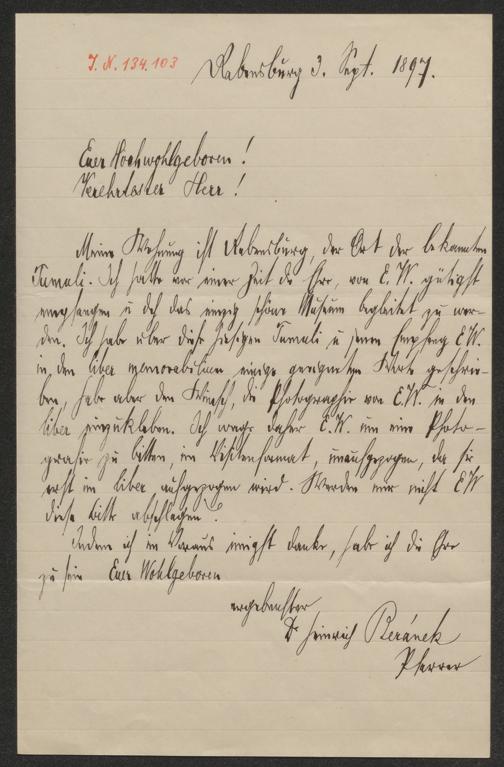 I. N. 134.103
Rabensburg 3. Sept. 1897.
Euer Hochwohlgeboren!
Verehrtester Herr!
Meine Wohnung ist Rabensburg, der Ort der bekannten
Tumuli. Ich hatte vor einer Zeit die Ehre, von E. W. gütigst
empfangen u durch das einzig schöne Museum begleitet zu wer-
den. Ich habe über diese hiesigen Tumuli u jenen Empfang E W.
in den liber memorabilium einige geeignete Worte geschrie-
ben, habe aber den Wunsch, die Photographie von E. W. in den
liber einzukleben. Ich wage daher E. W. um eine Photo-
grafie zu bitten, im Visitenformat, unaufgezogen, da sie
erst im liber aufgezogen wird. Werden mir nicht E W
diese Bitte abschlagen?
Indem ich im Voraus innigst danke, habe ich die Ehre
zu sein Euer Wohlgeboren
ergebenster
Dr Heinrich Beránek
Pfarrer